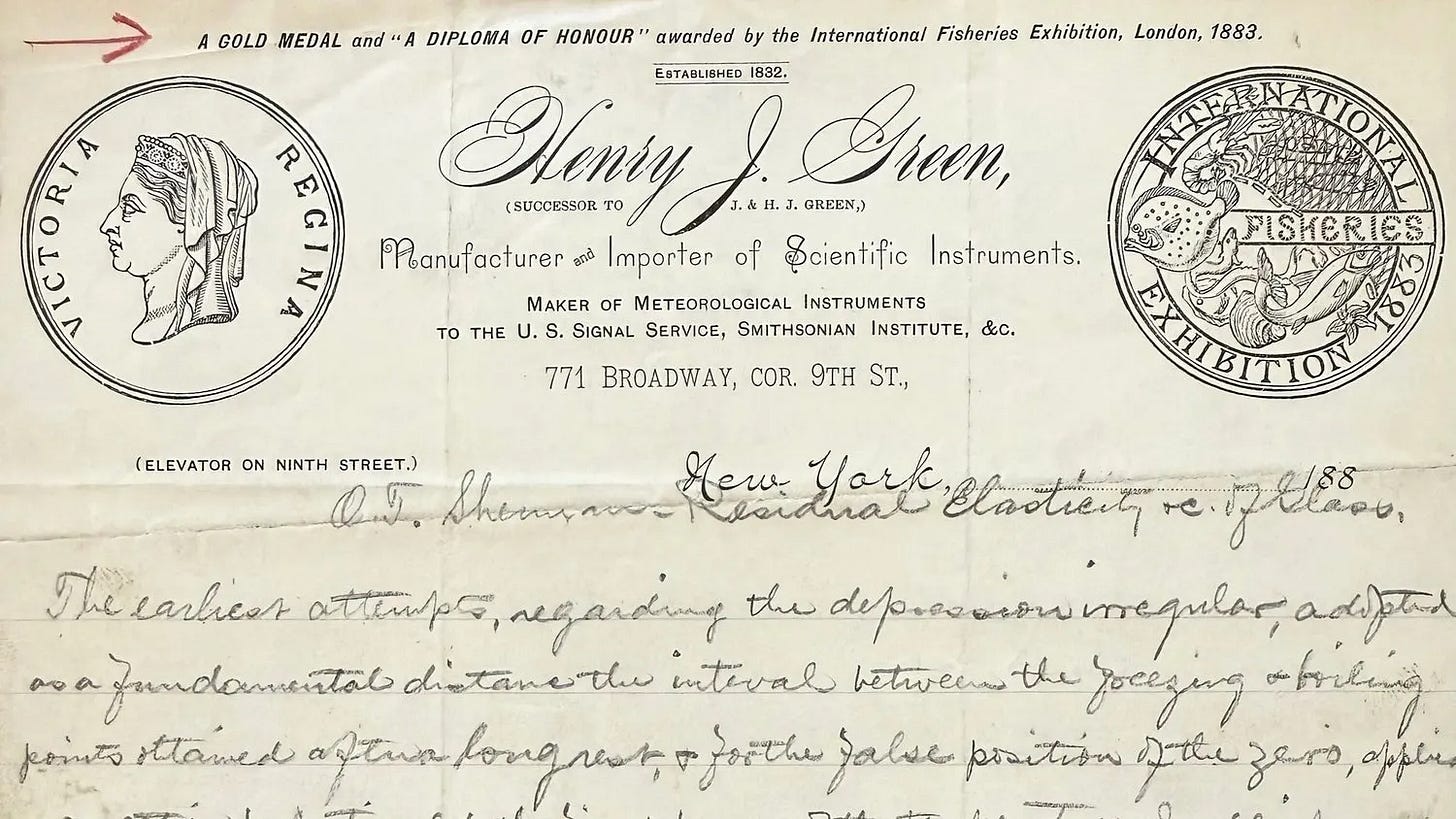 A GOLD MEDAL and "A DIPLOMA OF HONOUR" awarded by the International Fisheries Exhibition, London, 1883.
ESTABLISHED 1832.
VICTORIA REGINA
Henry J. Green,
INTERNATIONAL FISHERIES EXHIBITION 1883
(SUCCESSOR TO J. & H. J. GREEN,)
Manufacturer and Importer of Scientific Instruments.
MAKER OF METEOROLOGICAL INSTRUMENTS
TO THE U. S. SIGNAL SERVICE, SMITHSONIAN INSTITUTE, &C.
771 BROADWAY, COR. 9TH ST.,
(ELEVATOR ON NINTH STREET.)
New York, 188
O.T. Sherman - Residual Elasticity &c. of Glass.
The earliest attempts, regarding the depression irregular, adopted
as a fundamental distance the interval between the freezing & boiling
points obtained after a long rest, & for the false position of the zero, applied